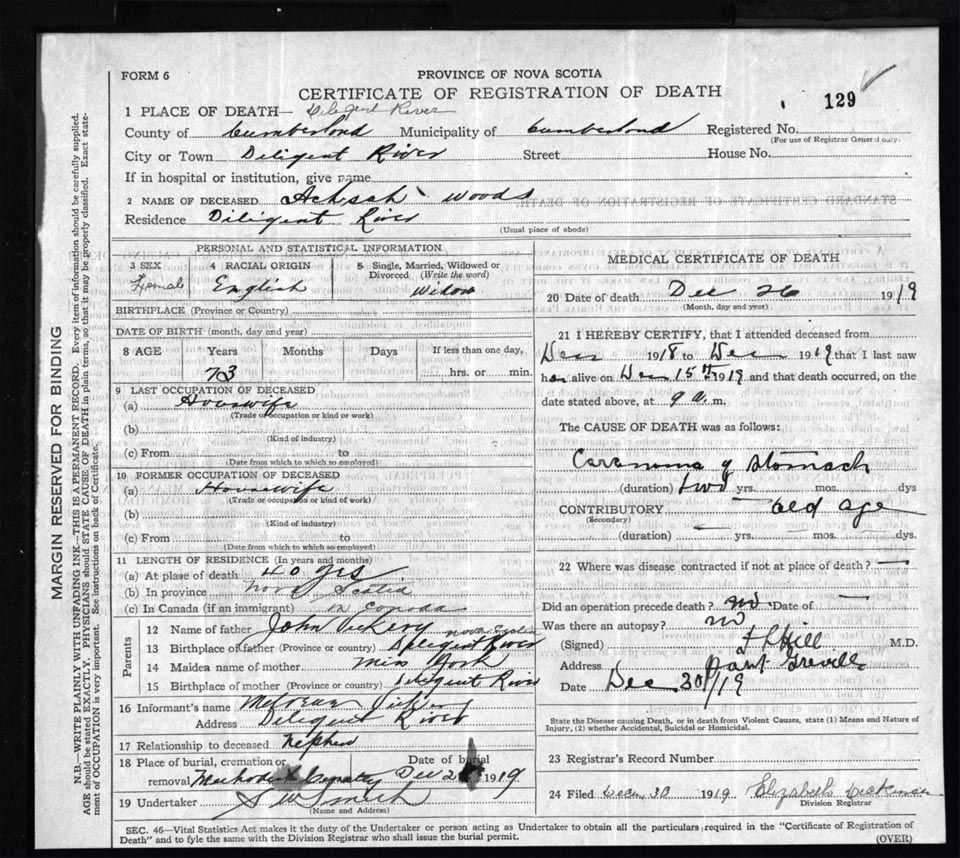 FORM 6
PROVINCE OF NOVA SCOTIA
CERTIFICATE OF REGISTRATION OF DEATH
129
1 PLACE OF DEATH— Diligent River
County of Cumberland Municipality of Cumberland Registered No.
(For use of Registrar General only.
City or Town Diligent River Street House No.
If in hospital or institution, give name
2 NAME OF DECEASED Achsah Woods
Residence Diligent River
(Usual place of abode)
PERSONAL AND STATISTICAL INFORMATION
3 SEX 4 RACIAL ORIGIN 5 Single, Married, Widowed or Divorced (Write the word)
Female English Widow
BIRTHPLACE (Province or Country)
DATE OF BIRTH (month, day and year)
8 AGE Years Months Days If less than one day,
73 hrs. or min.
9 LAST OCCUPATION OF DECEASED
(a) Housewife
(Trade or occupation or kind or work)
(b)
(Kind of industry)
(c) From to
(Date from which to which so employed)
10 FORMER OCCUPATION OF DECEASED
(a) Housewife
(Trade or occupation or kind of work)
(b)
(Kind of industry)
(c) From to
(Date from which to which so employed)
11 LENGTH OF RESIDENCE (In years and months)
(a) At place of death 40 yrs
(b) In province Nova Scotia
(c) In Canada (if an immigrant) in Canada
Parents
12 Name of father John Vickery
Nova Scotia
13 Birthplace of father (Province or country) Diligent River
14 Maiden name of mother Miss York
15 Birthplace of mother (Province or country) Diligent River
16 Informant's name
Address Diligent River
17 Relationship to deceased Nephew
18 Place of burial, cremation or removal Methodist Date of burial Dec 1919
19 Undertaker S W Smith
(Name and Address)
MEDICAL CERTIFICATE OF DEATH
20 Date of death Dec 26 1919
(Month, day and year)
21 I HEREBY CERTIFY, that I attended deceased from
Dec 1918 to Dec 1919 that I last saw
her alive on Dec 15th 1919 and that death occurred, on the
date stated above, at 9 a.m.
The CAUSE OF DEATH was as follows:
of Stomach
(duration) two yrs. mos. dys
CONTRIBUTORY old age
(Secondary)
(duration) yrs. mos. dys.
22 Where was disease contracted if not at place of death? —
Did an operation precede death? no Date of —
Was there an autopsy? no
(Signed) Hill M.D.
Address Port Greville
Date Dec 30/19
State the Disease causing Death, or in death from Violent Causes, state (1) Means and Nature of
Injury, (2) whether Accidental, Suicidal or Homicidal.
23 Registrar's Record Number
24 Filed Dec. 30 1919 Elizabeth Dickinson
Division Registrar
SEC. 46—Vital Statistics Act makes it the duty of the Undertaker or person acting as Undertaker to obtain all the particulars required in the "Certificate of Registration of
Death" and to fyle the same with the Division Registrar who shall issue the burial permit. (OVER)
MARGIN RESERVED FOR BINDING
N.B.—WRITE PLAINLY WITH UNFADING INK—THIS IS A PERMANENT RECORD. Every item of information should be carefully supplied.
AGE should be stated EXACTLY. PHYSICIANS should STATE CAUSE OF DEATH in plain terms, so that it may be properly classified. Exact state-
ment of OCCUPATION is very important. See instructions on back of Certificate.